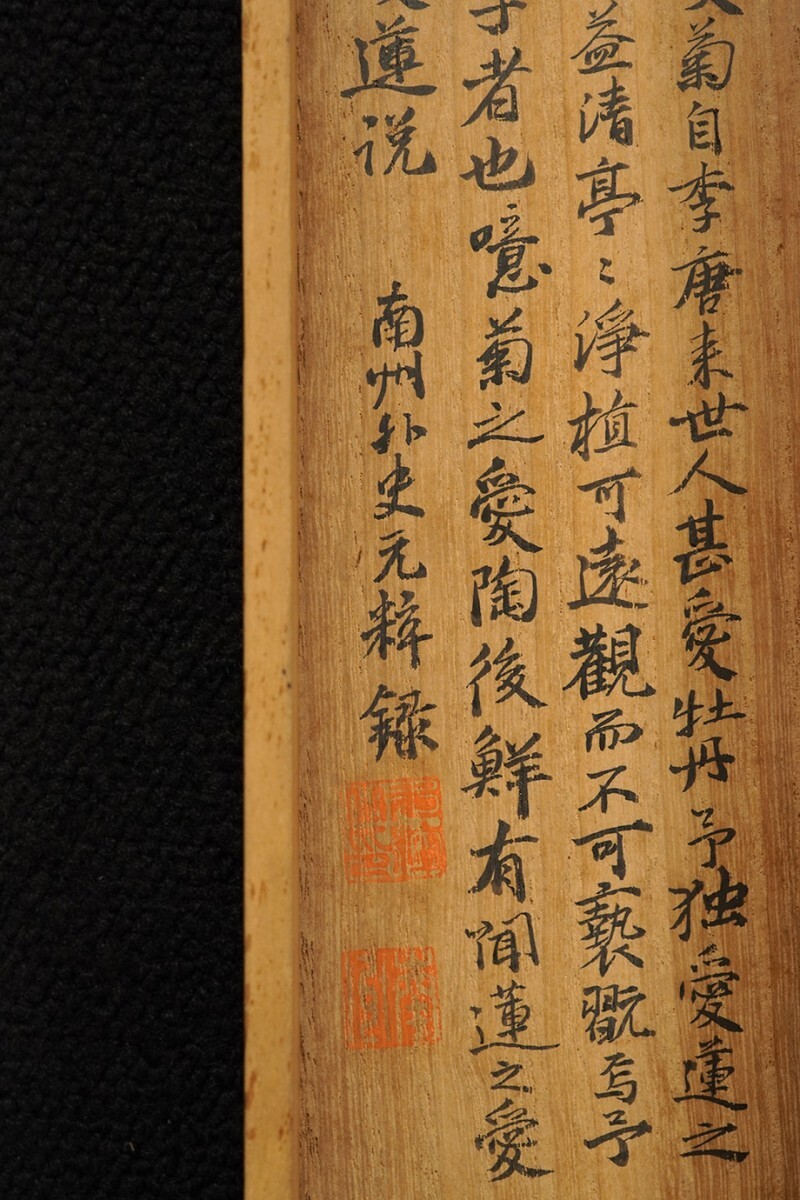 菊自李唐来世人甚愛牡丹予独愛蓮之
益清亭〻淨植可遠觀而不可褻翫焉予
者也噫菊之愛陶後鮮有聞蓮之愛
蓮説
南州外史元粹録